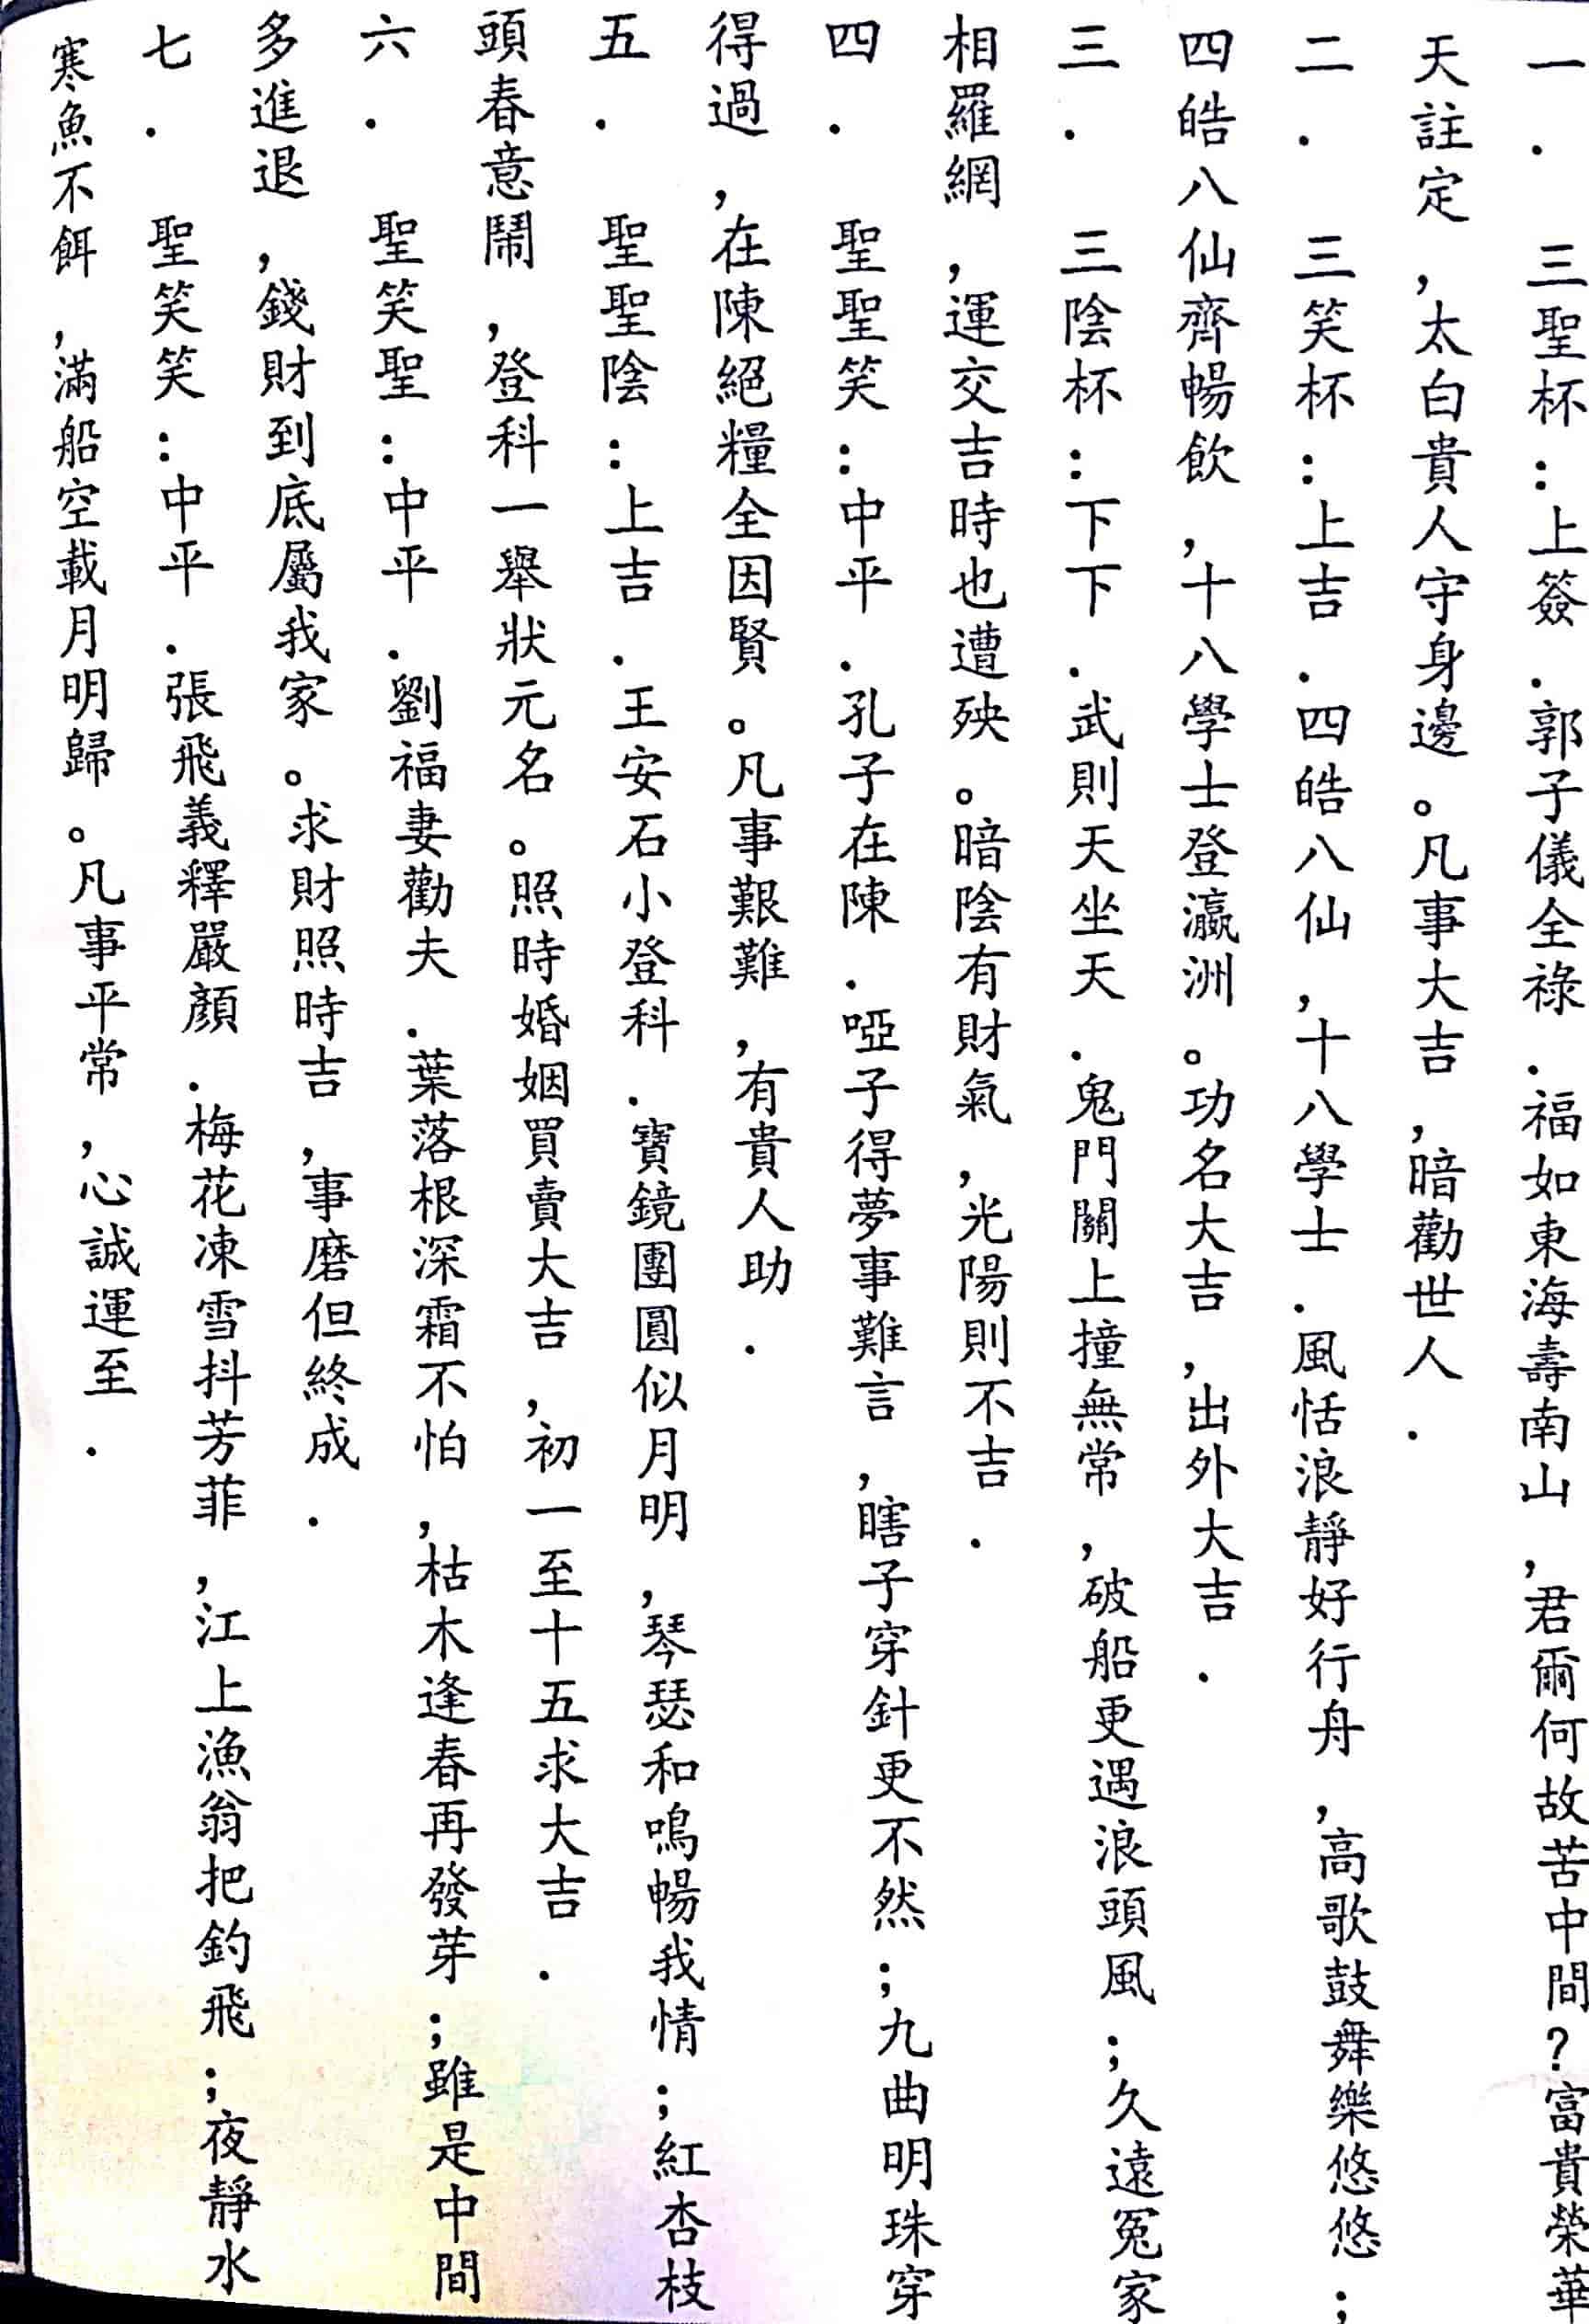 一．　三聖杯：上簽．郭子儀全祿．福如東海壽南山，君爾何故苦中間？富貴榮華
天註定，太白貴人守身邊。凡事大吉，暗勸世人．
二．　三笑杯：上吉．四皓八仙，十八學士．風恬浪靜好行舟，高歌鼓舞樂悠悠；
四皓八仙齊暢飲，十八學士登瀛洲。功名大吉，出外大吉．
三．　三陰杯：下下．武則天坐天．鬼門關上撞無常，破船更遇浪頭風；久遠冤家
相羅網，運交吉時也遭殃。暗陰有財氣，光陽則不吉．
四．　聖聖笑：中平．孔子在陳．啞子得夢事難言，瞎子穿針更不然；九曲明珠穿
得過，在陳絕糧全因賢。凡事艱難，有貴人助．
五．　聖聖陰：上吉．王安石小登科．寶鏡團圓似月明，琴瑟和鳴暢我情；紅杏枝
頭春意鬧，登科一舉狀元名。照時婚姻買賣大吉，初一至十五求大吉．
六．　聖笑聖：中平．劉福妻勸夫．葉落根深霜不怕，枯木逢春再發芽；雖是中間
多進退，錢財到底屬我家。求財照時吉，事磨但終成．
七．　聖笑笑：中平．張飛義釋嚴顏．梅花凍雪抖芳菲，江上漁翁把釣飛；夜靜水
寒魚不餌，滿船空載月明歸。凡事平常，心誠運至．